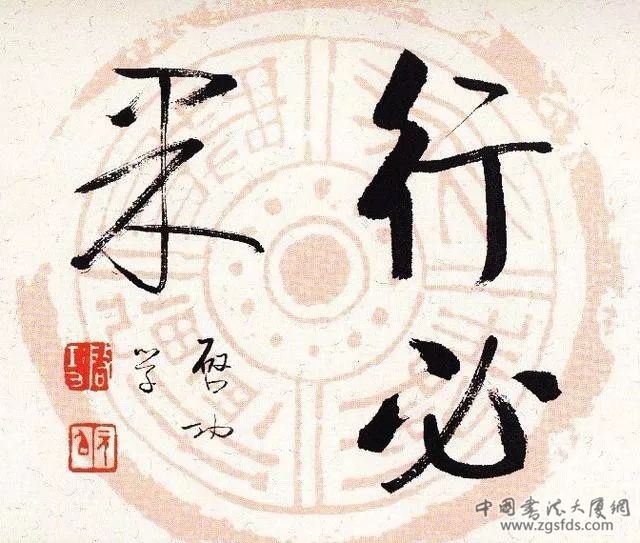 行必
果
启功
学
元白
中国书法大厦网
www.zgsfds.com